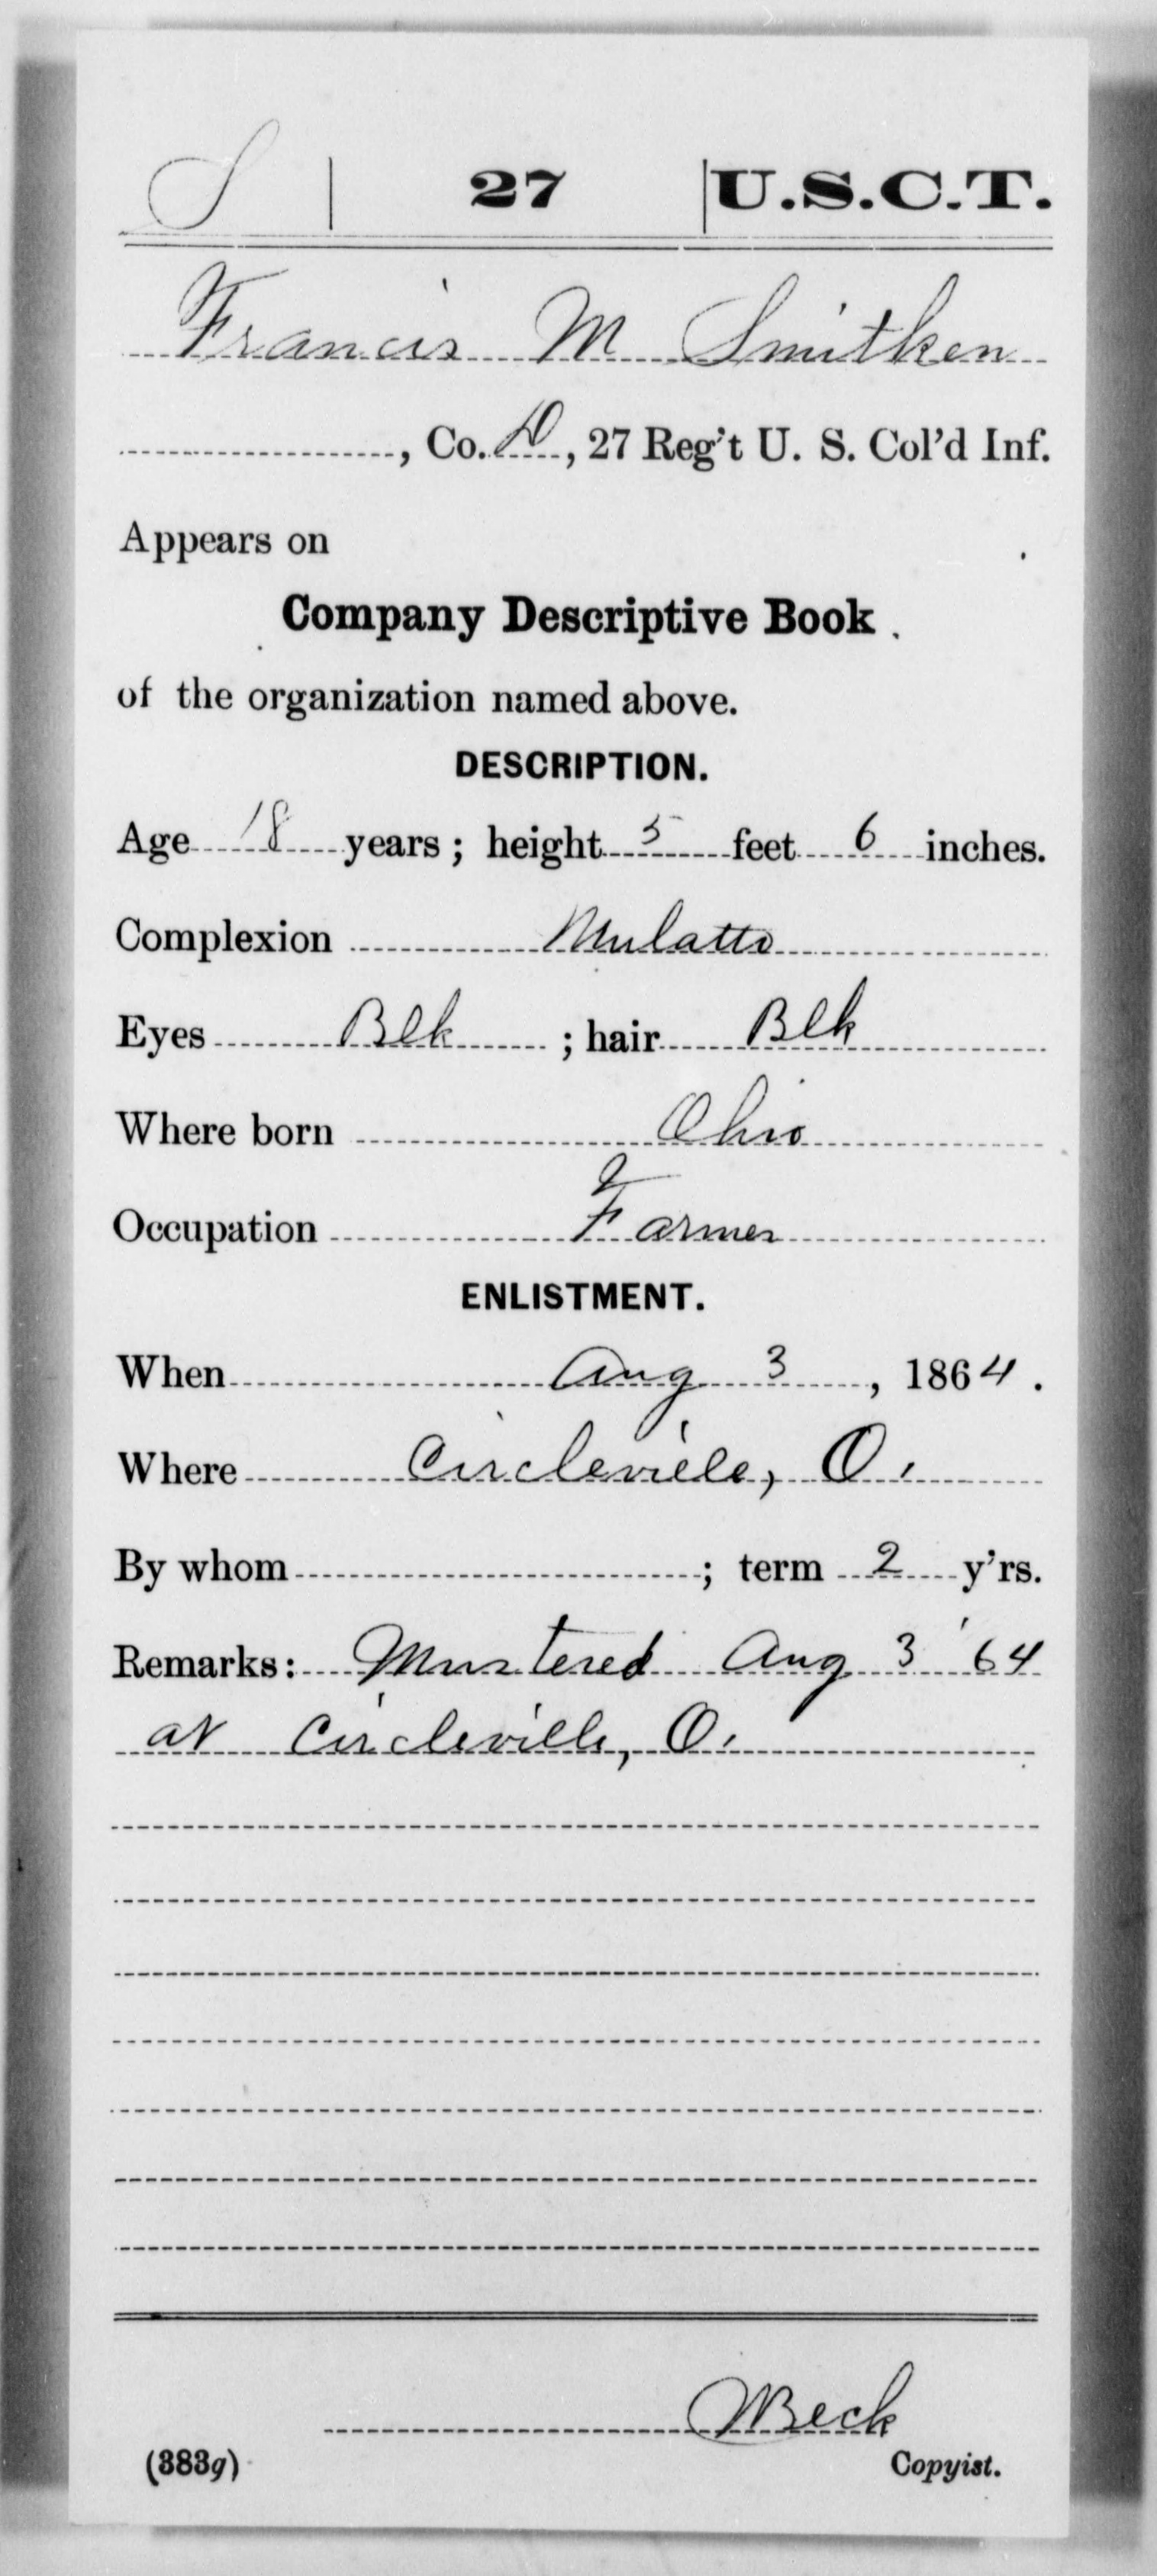 S | 27 | U.S.C.T.
Francis M Smitken
, Co. D, 27 Reg't U. S. Col'd Inf.
Appears on
Company Descriptive Book
of the organization named above.
DESCRIPTION.
Age 18 years; height 5 feet 6 inches.
Complexion Mulatto
Eyes Blk ; hair Blk
Where born Ohio
Occupation Farmer
ENLISTMENT.
When Aug 3, 1864.
Where Circleville, O.
By whom ; term 2 y'rs.
Remarks: Mustered Aug 3 '64
at Circleville, O.
Beck
(383g) Copyist.